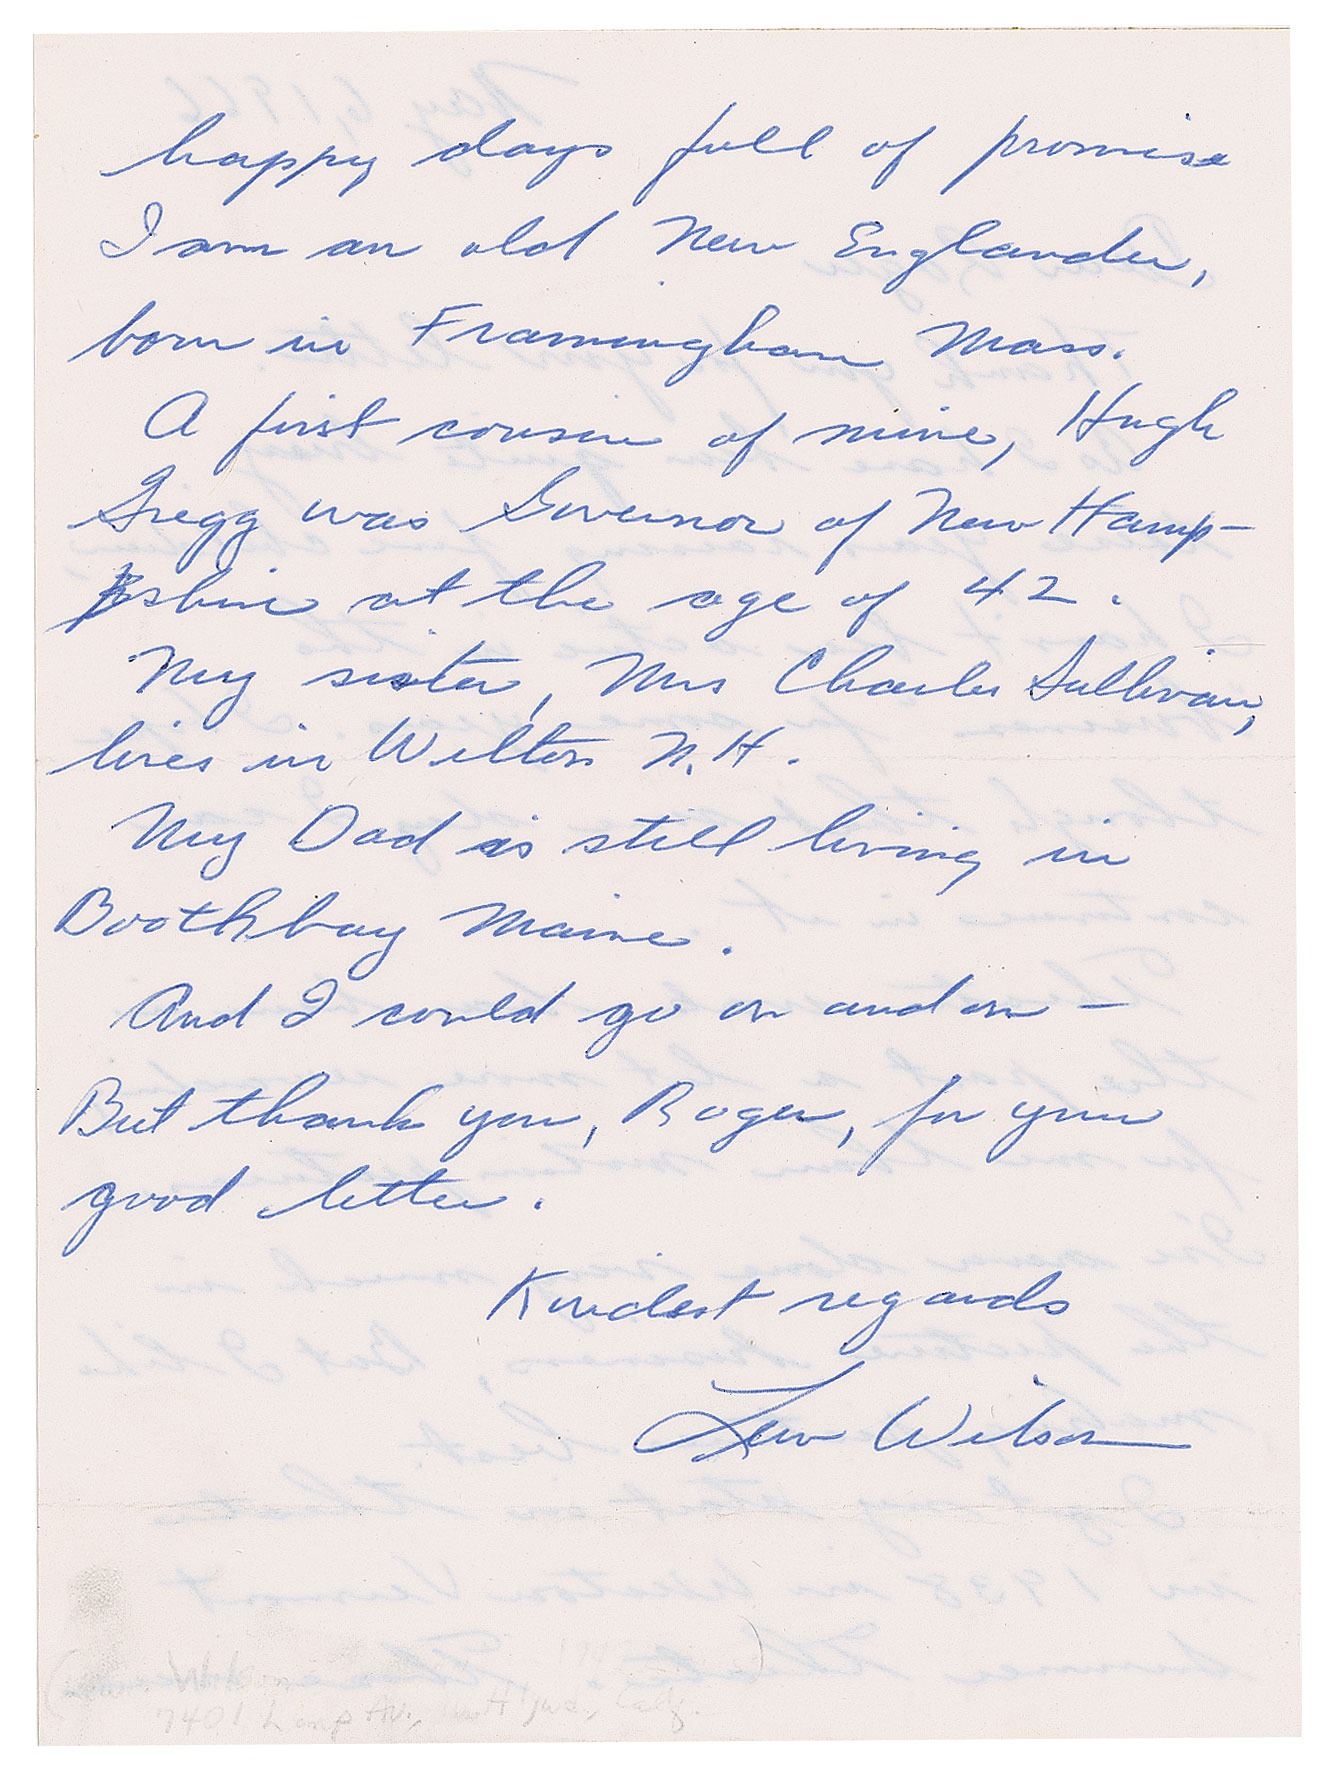 happy days full of promise
I am an old New Englander,
born in Framingham Mass.
A first cousin of mine, Hugh
Gregg was Governor of New Hamp-
shire at the age of 42.
My sister, Mrs Charles Sullivan,
lives in Wilton N.H.
My Dad is still living in
Boothbay Maine.
And I could go on and on –
But thank you, Roger, for your
good letter.
Kindest regards
Lew Wilson
7401 Av., Calif.